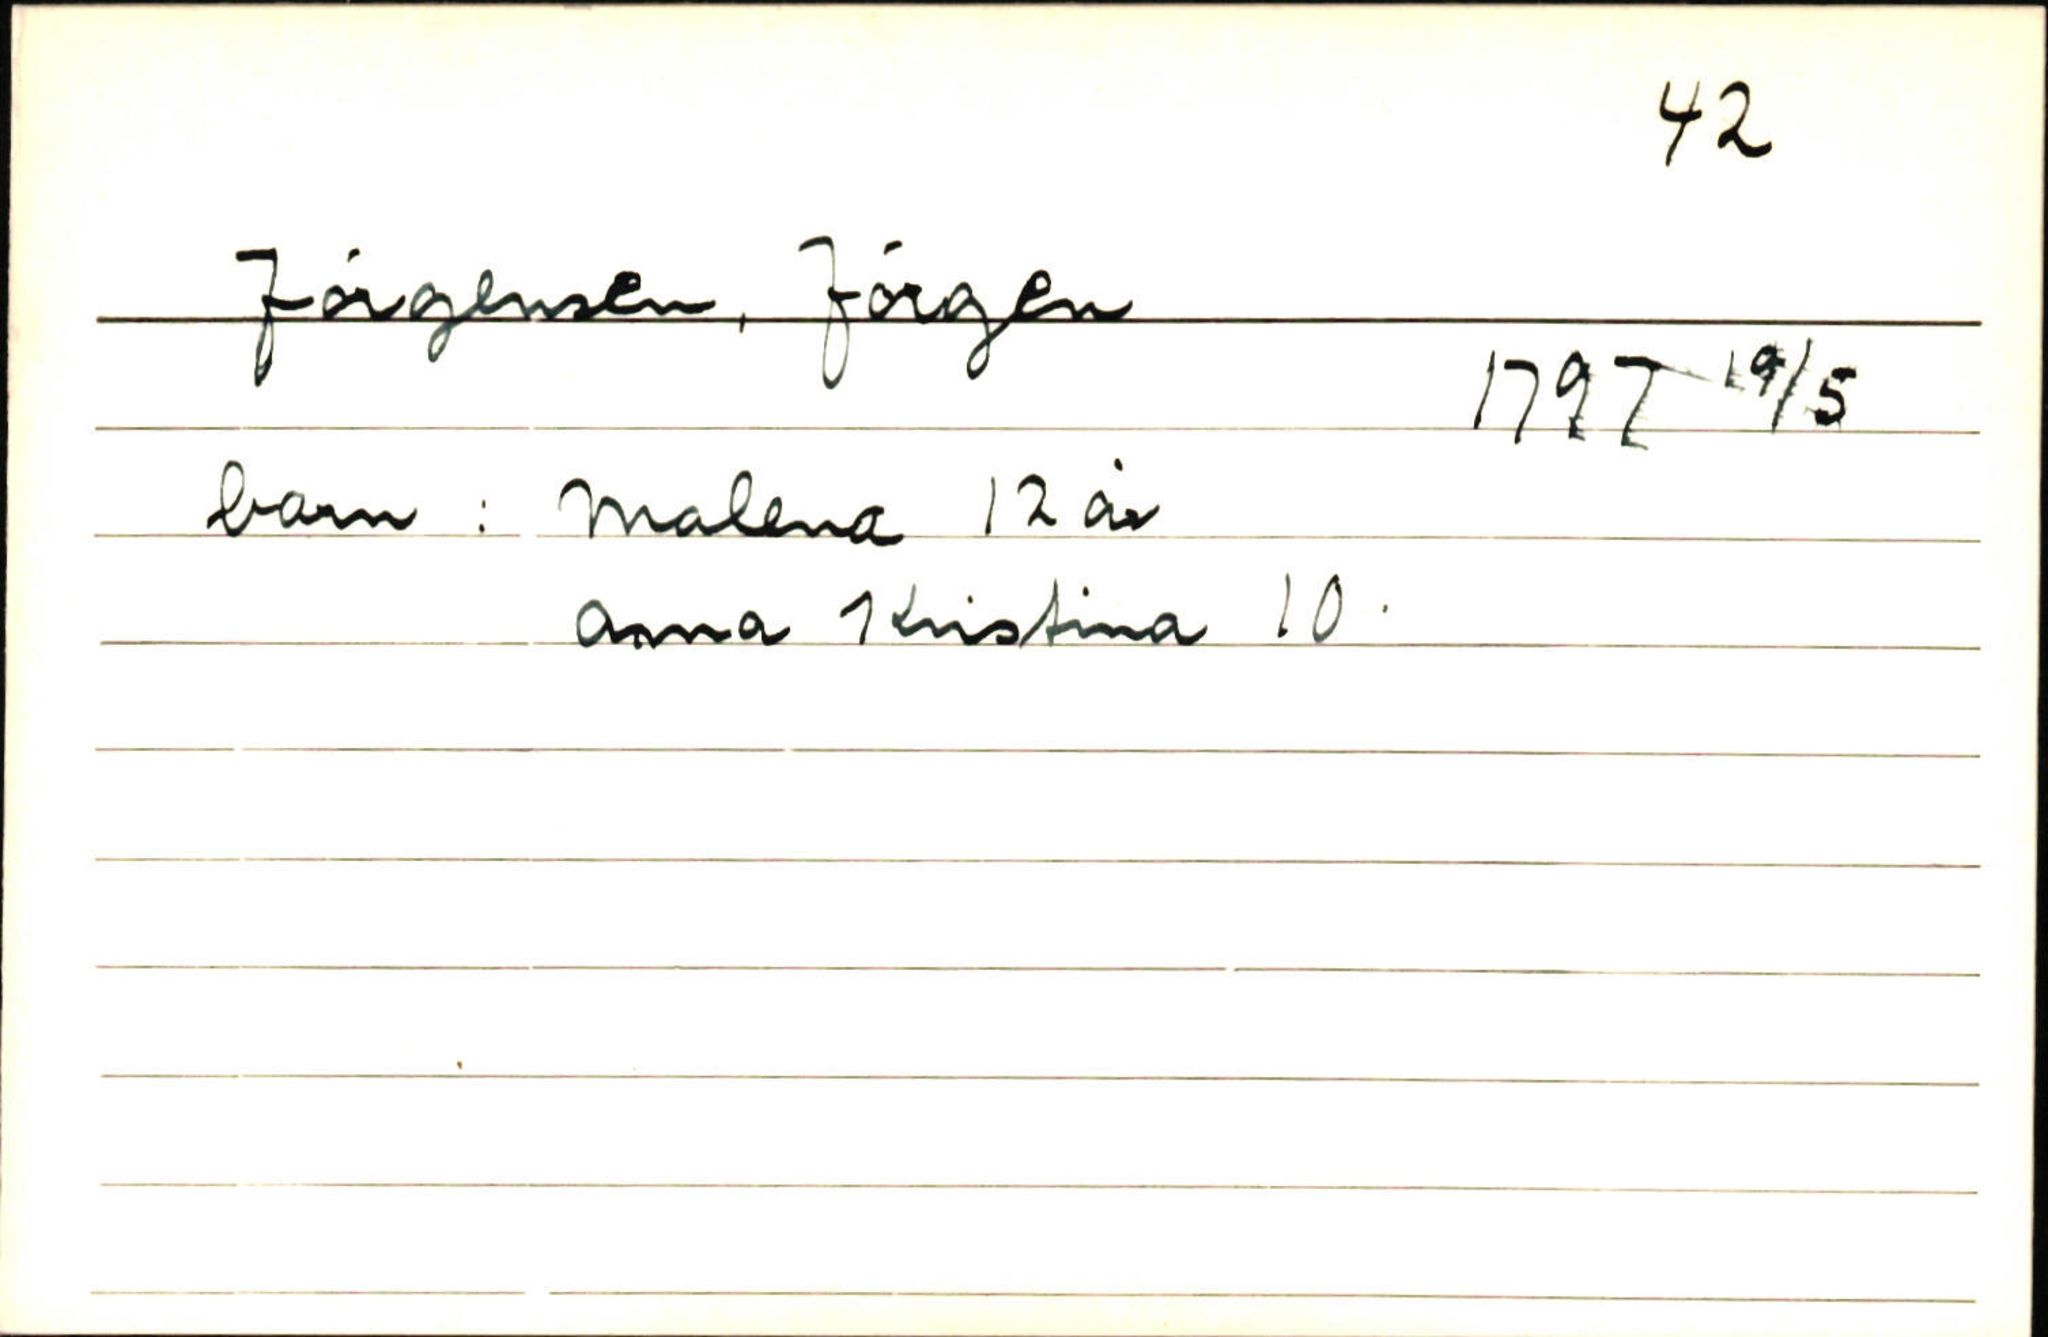 42
Jórgensen, Jórgen
1797 19/5
barn : Malena 12 år
Anna Kristina 10 .